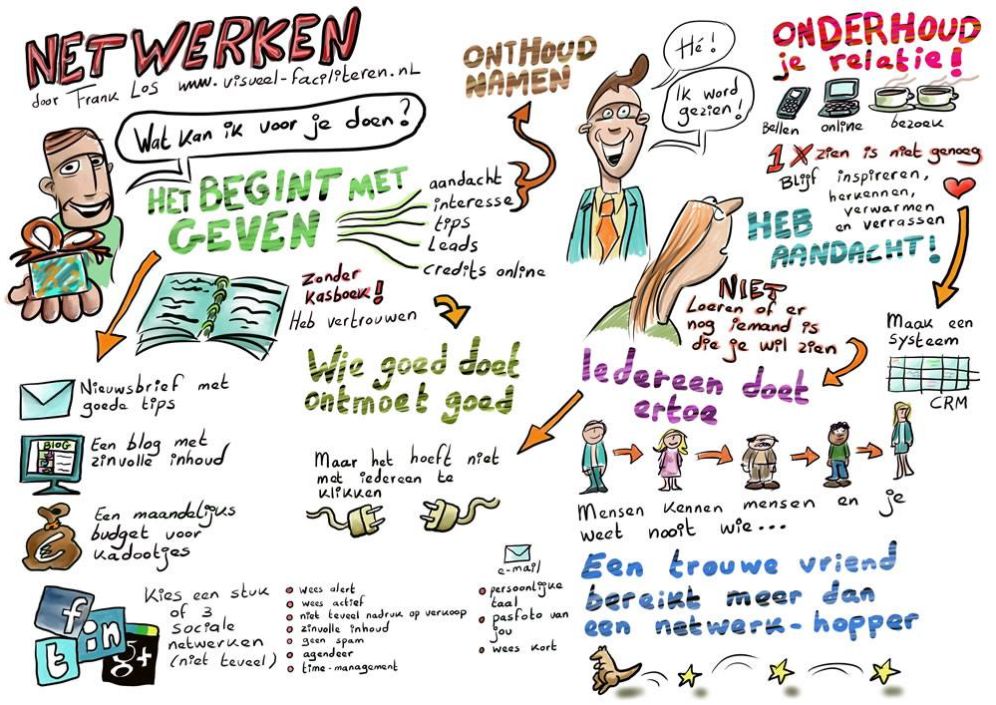 NETWERKEN
door Frank Los www.visueel-faciliteren.nl
Wat kan ik voor je doen?
HET BEGINT MET
GEVEN
aandacht
interesse
tips
Leads
credits online
ONTHOUD
NAMEN
Hé!
Ik word
gezien!
ONDERHOUD
je relatie!
Bellen
online
bezoek
1x zien is niet genoeg
Blijf inspireren,
herkennen,
verwarmen
en verrassen
HEB
AANDACHT!
NIET
Loeren of er
nog iemand is
die je wil zien
Maak een
systeem
CRM
Zonder
kasboek!
Heb vertrouwen
Wie goed doet
ontmoet goed
Iedereen doet
ertoe
Nieuwsbrief met
goede tips
BLOG
Een blog met
zinvolle inhoud
Een maandelijks
budget voor
kadootjes
Maar het hoeft niet
met iedereen te
klikken
Mensen kennen mensen en je
weet nooit wie...
f
in
t
g+
Kies een stuk
of 3
sociale
netwerken
(niet teveel)
wees alert
wees actief
niet teveel nadruk op verkoop
zinvolle inhoud
geen spam
agendeer
time-management
e-mail
persoonlijke
taal
pasfoto van
jou
wees kort
Een trouwe vriend
bereikt meer dan
een netwerk-hopper